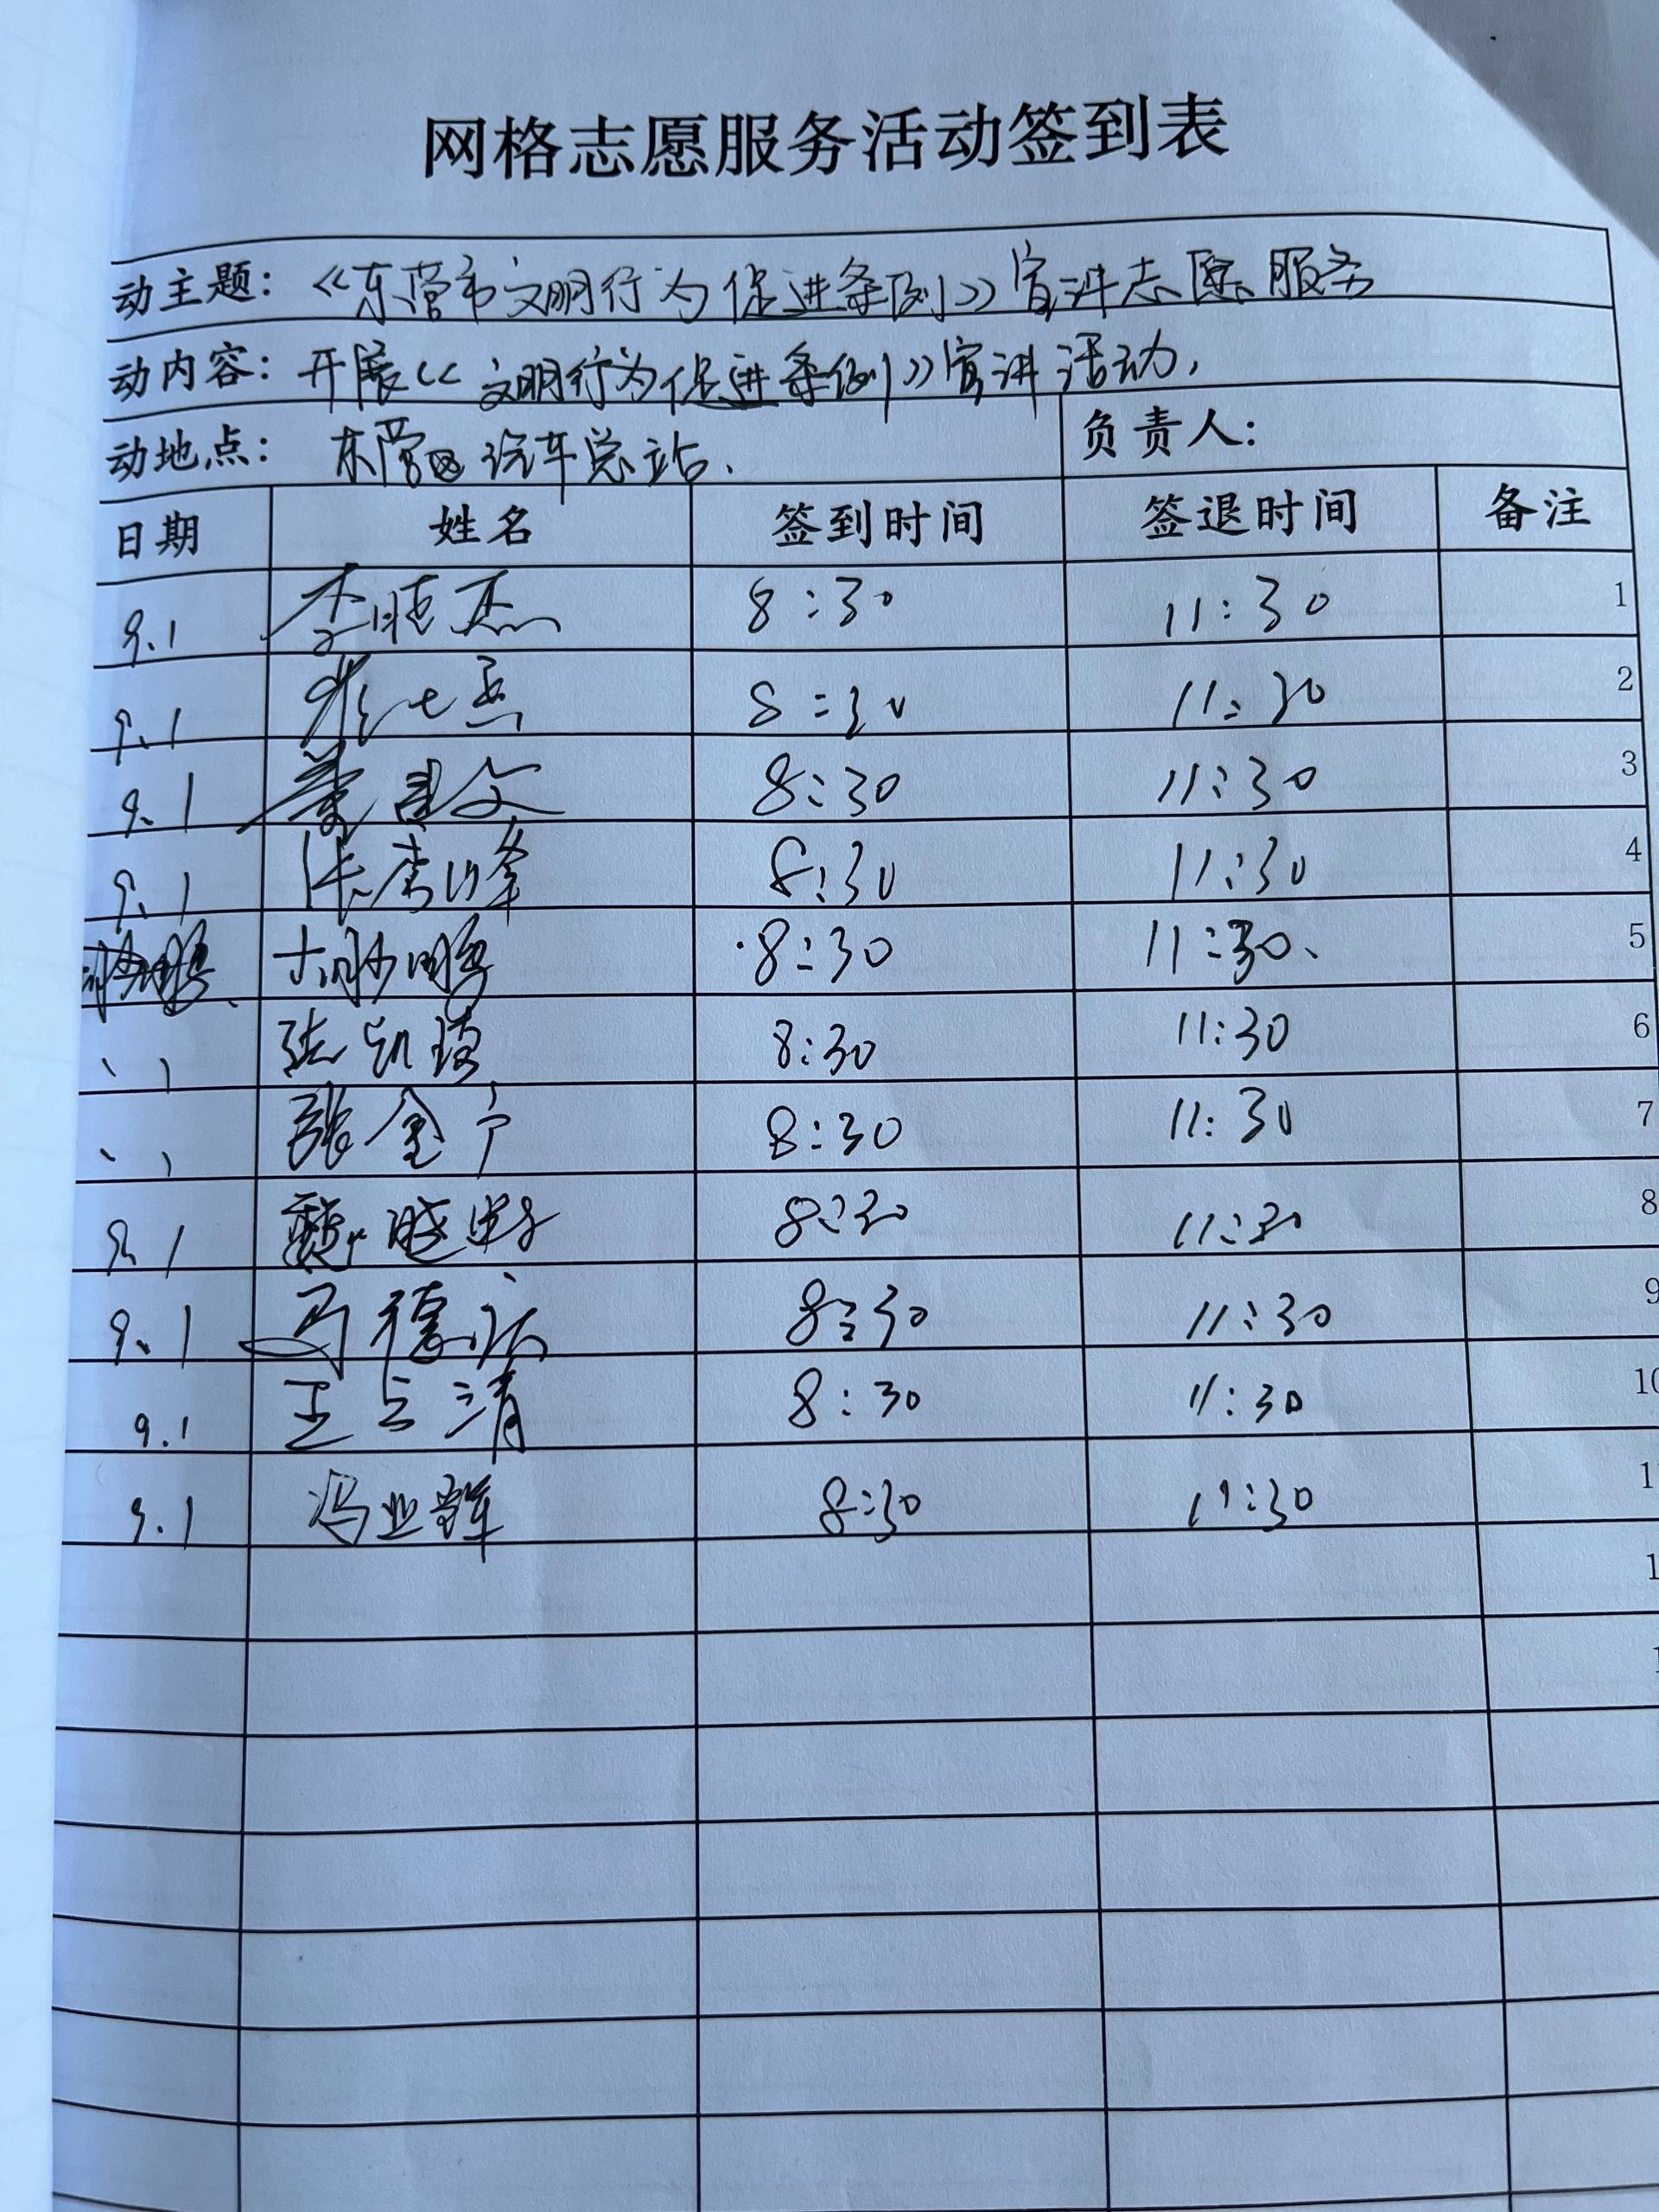 网格志愿服务活动签到表
动主题：《东营市文明行为促进条例》宣讲志愿服务
动内容：开展《文明行为促进条例》宣讲活动.
动地点：东营区汽车总站. 负责人：
日期 姓名 签到时间 签退时间 备注
9.1 李晓杰 8:30 11:30 1
9.1 8:30 11:30 2
9.1 文 8:30 11:30 3
9.1 张 峰 8:30 11:30 4
8:30 11:30 5
张凯 8:30 11:30 6
张金 8:30 11:30 7
9.1 魏晓 8:30 11:30 8
9.1 马德 8:30 11:30 9
9.1 王 清 8:30 11:30 10
9.1 冯业 8:30 11:30 1
1
1